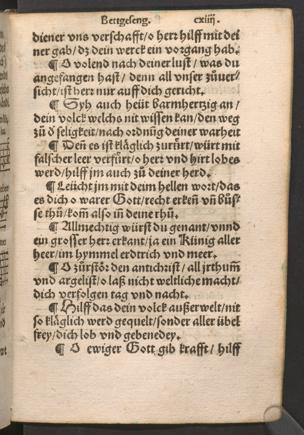 Bettgeseng. cxiiij.
diener vns verschafft/ o herr hilff mit dei
ner gab/ dz dein werck ein vorgang hab.
¶ O volend nach deiner lust/ was du
angefangen hast/ denn all vnser züuer/
sicht/ ist herr nur auff dich gericht.
¶ Syh auch heüt barmhertzig an/
dein volck welchs nit wissen kan/ den weg
zů ð seligkeit/ nach ordnũg deiner warheit
¶ Deñ es ist kläglich zurürt/ würt mit
falscher leer verfürt/ o herr vnd hirt lobes
werd/ hilff jm auch zů deiner herd.
¶ Leücht jm mit deim hellen wort/ das
es dich o warer Gott/ recht erkeñ vñ bůs/
se thů/ kom̃ also in deine rhů.
¶ Allmechtig würst du genant/ vnnd
ein grosser herr erkant/ ja ein Künig aller
heer/ im hymmel erdtrich vnd meer.
¶ O zürstör den antichrist/ all jrthum̃
vnd argelist/ o laß nicht weltliche macht/
dich verfolgen tag vnd nacht.
¶ Hilff das dein volck außerwelt/ nit
so kläglich werd gequelt/ sonder aller übel
frey/ dich lob vnd gebenedey.
¶ O ewiger Gott gib krafft/ hilff